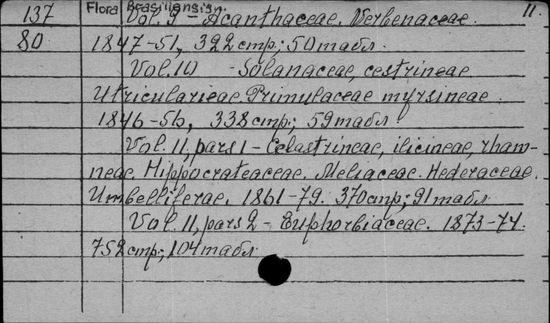 137 Flora Brasiliensis. Vol. 9 - Acanthaceae. Verbenaceae. 11.
80 1847-51, 322 стр; 50 табл.
Vol. 10 - Solanaceae, cestrineae
Utricularieae Primulaceae myrsineae
1846-56, 338 стр; 59 табл
Vol. 11, pars 1 - Celastrineae, ilicineae, rham-
neae. Hippocrateaceae. Meliaceae. Hederaceae.
Umbelliferae. 1861-79. 370 стр; 91 табл
Vol. 11, pars 2 - Euphorbiaceae. 1873-74.
752 стр; 104 табл